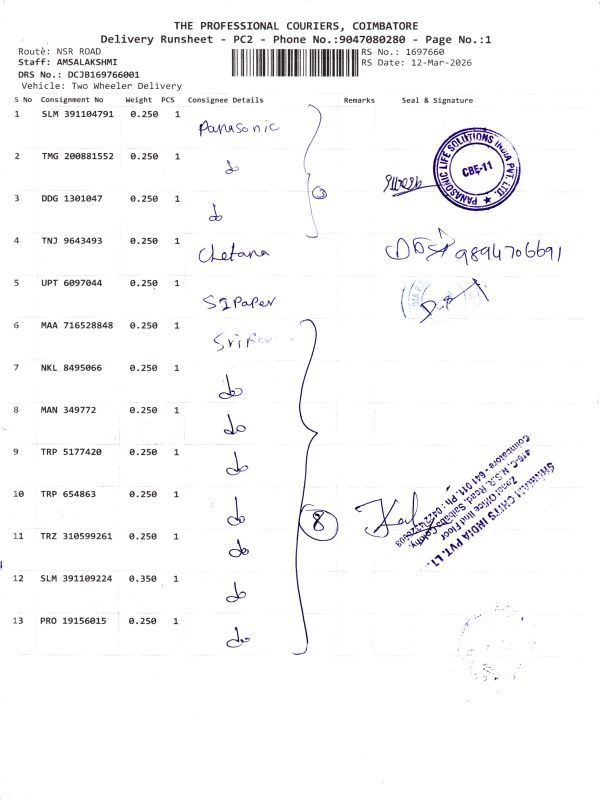 THE PROFESSIONAL COURIERS, COIMBATORE
Delivery Runsheet - PC2 - Phone No.:9047080280 - Page No.:1
Route: NSR ROAD
RS No.: 1697660
Staff: AMSALAKSHMI
RS Date: 12-Mar-2026
DRS No.: DCJB169766001
Vehicle: Two Wheeler Delivery
S No Consignment No Weight PCS Consignee Details Remarks Seal & Signature
1 SLM 391104791 0.250 1 Panasonic
2 TMG 200881552 0.250 1 do
3 DDG 1301047 0.250 1 do
3
PANASONIC LIFE SOLUTIONS INDIA PVT. LTD.
CBE-11
4 TNJ 9643493 0.250 1 Chetana 9894706691
5 UPT 6097044 0.250 1 SIPaper
6 MAA 716528848 0.250 1
7 NKL 8495066 0.250 1 do
8 MAN 349772 0.250 1 do
9 TRP 5177420 0.250 1 do
10 TRP 654863 0.250 1 do
8
11 TRZ 310599261 0.250 1 do
12 SLM 391109224 0.350 1 do
13 PRO 19156015 0.250 1 do
SHRIRAM CHITS INDIA PVT. LT
Zonal Office IInd Floor
416-C, N.S.R. Road, Saibaba Colony,
Coimbatore - 641 011. Ph :